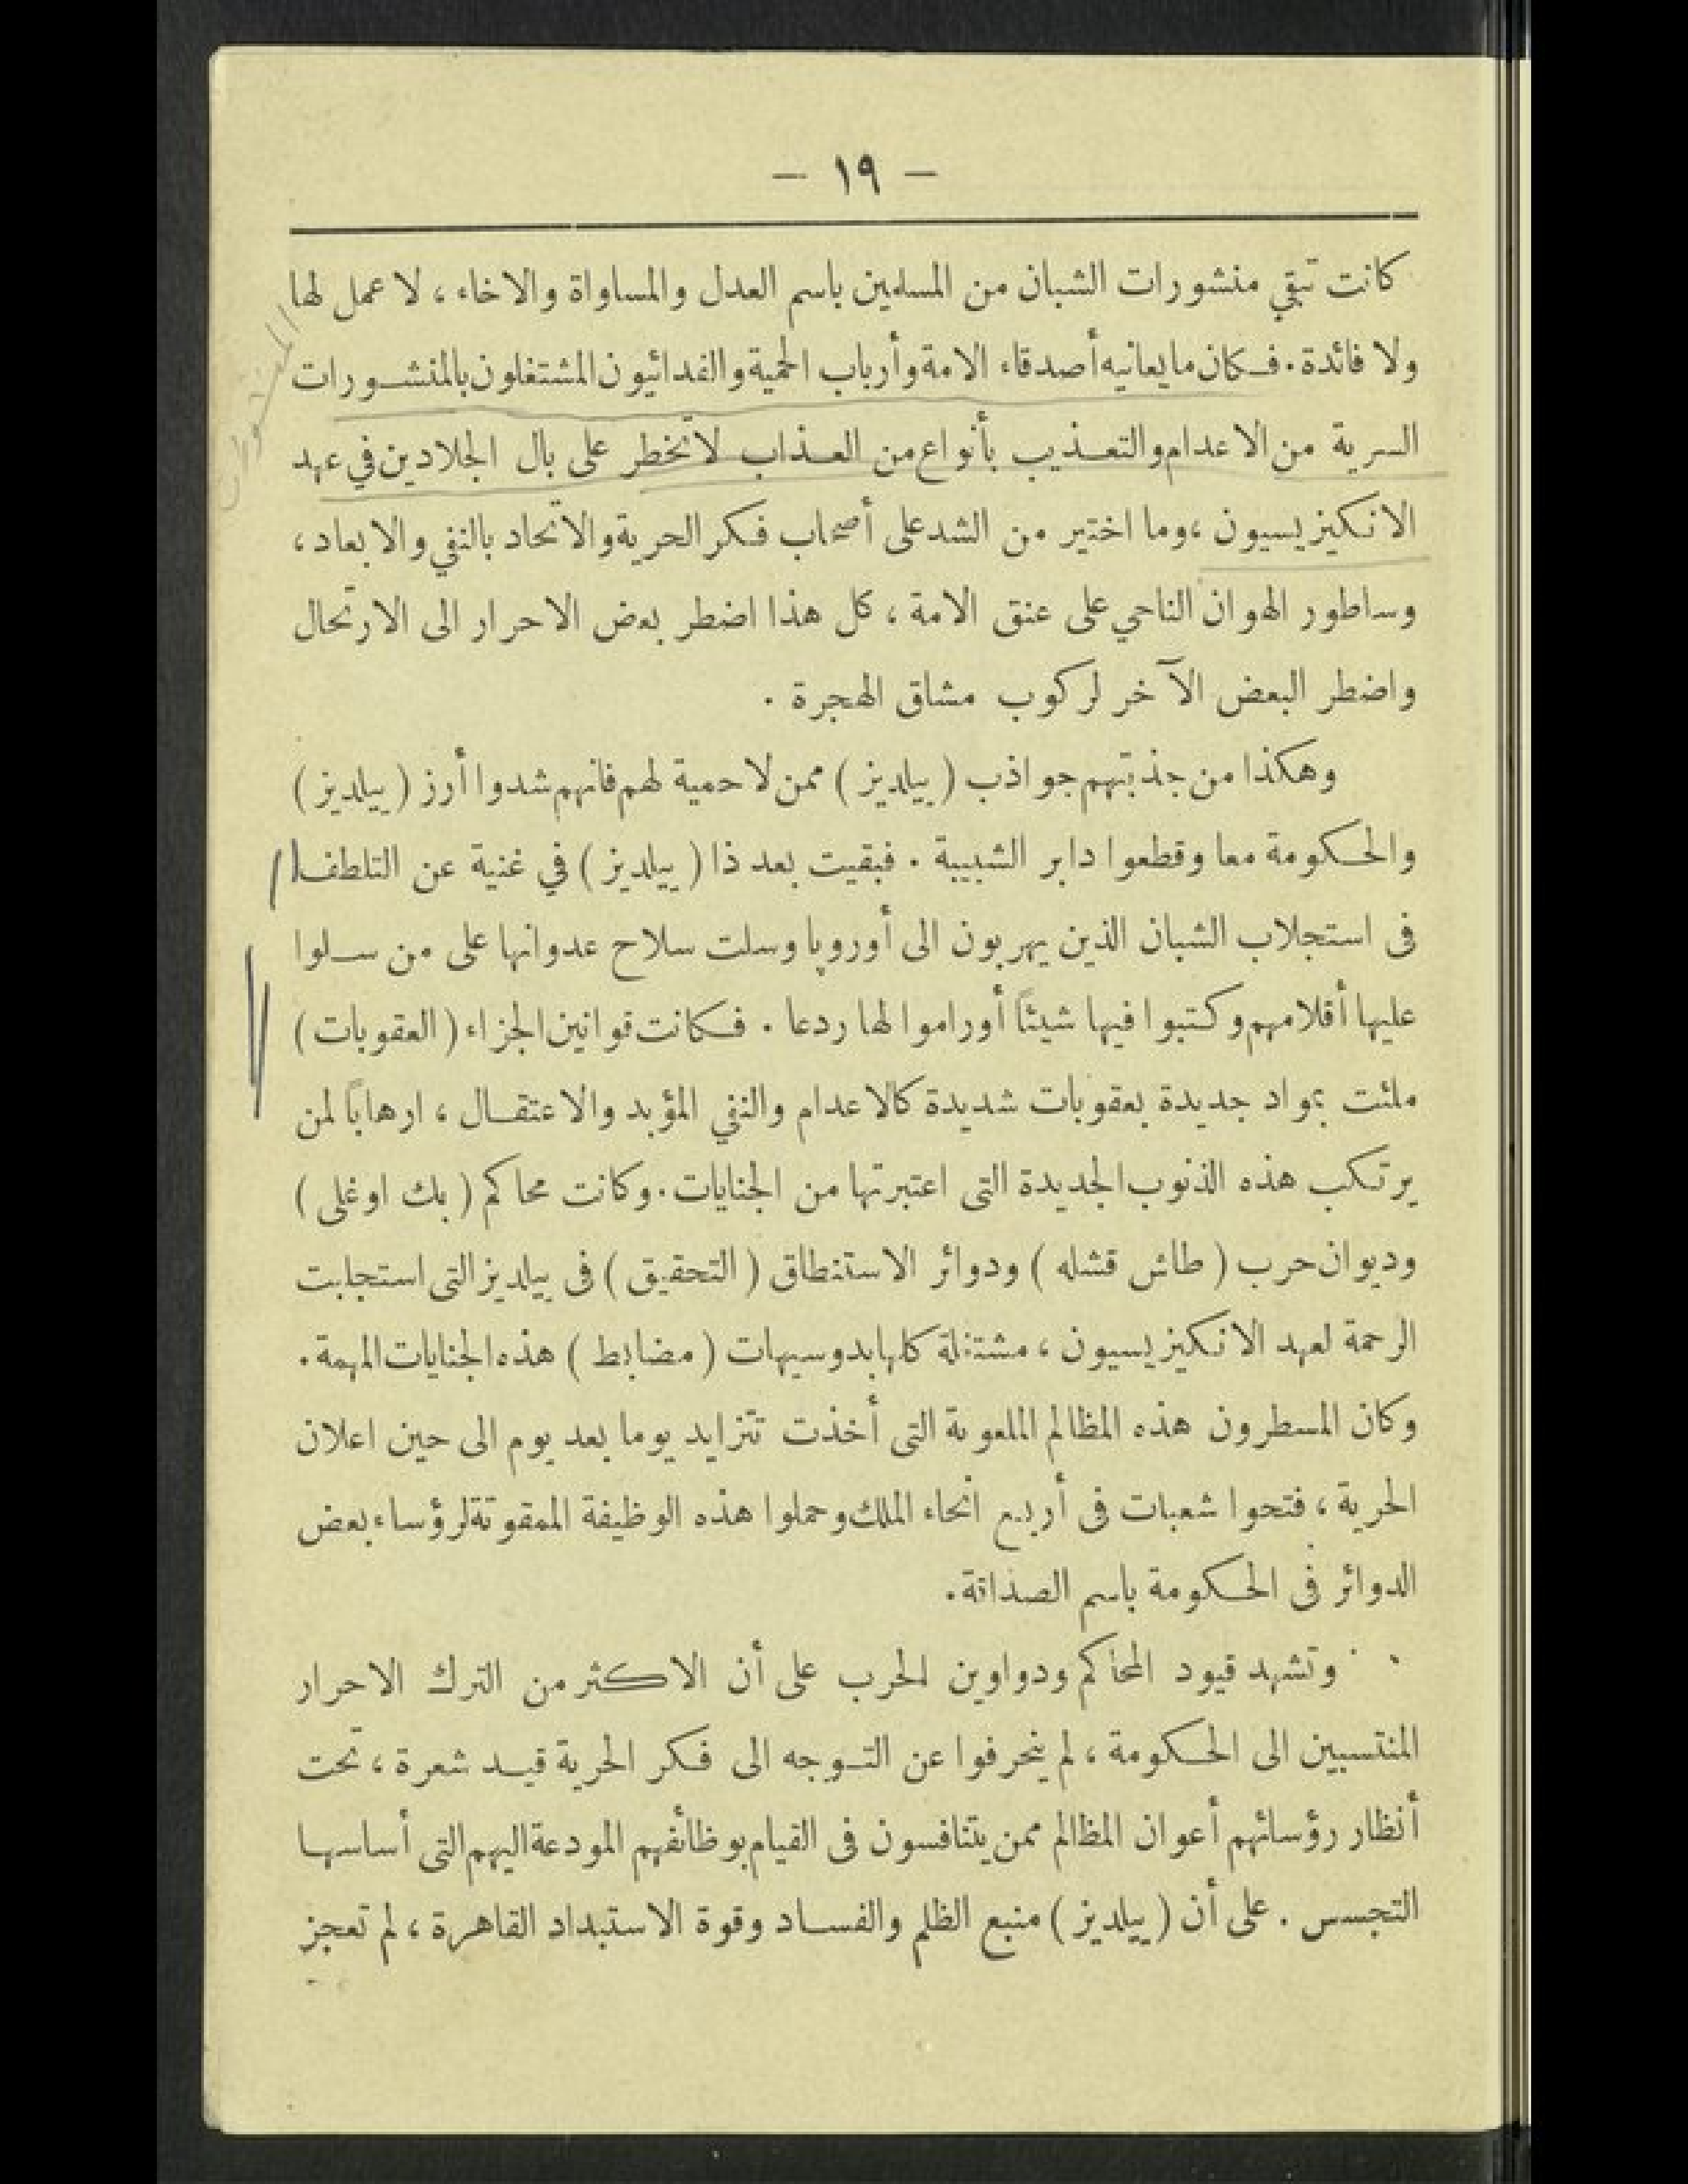 — ١٩ —
كانت تبقى منشورات الشبان من المسلمين باسم العدل والمساواة والاخاء ، لا عمل لها
ولا فائدة . فكان ما يعانيه أصدقاء الامة وأرباب الحمية والفدائيون المشتغلون بالمنشورات
السرية من الاعدام والتعذيب بأنواع من العذاب لاتخطر على بال الجلادين في عهد
الانكيزيسيون ، وما اختير من الشد على أصحاب فكر الحرية والاتحاد بالنفي والابعاد ،
وساطور الهوان الناحي على عنق الامة ، كل هذا اضطر بعض الاحرار الى الارتحال
واضطر البعض الآخر لركوب مشاق الهجرة .
وهكذا من جذبتهم جواذب ( ييلديز ) ممن لا حمية لهم فانهم شدوا أزر ( ييلديز )
والحكومة معا وقطعوا دابر الشبيبة . فبقيت بعد ذا ( ييلديز ) في غنية عن التلطف
فى استجلاب الشبان الذين يهربون الى أوروپا وسلت سلاح عدوانها على من سلوا
عليها أقلامهم وكتبوا فيها شيئاً أوراموا لها ردعا . فكانت قوانين الجزاء ( العقوبات )
ملئت بمواد جديدة بعقوبات شديدة كالاعدام والنفي المؤبد والاعتقال ، ارهاباً لمن
يرتكب هذه الذنوب الجديدة التى اعتبرتها من الجنايات . وكانت محاكم ( بك اوغلى )
وديوان حرب ( طاش قشله ) ودوائر الاستنطاق ( التحقيق ) فى ييلديز التى استجلبت
الرحمة لعهد الانكيزيسيون ، مشتغلة كلها بدوسيهات ( مضابط ) هذه الجنايات المهمة .
وكان المسطرون هذه المظالم الملعونة التى أخذت تتزايد يوما بعد يوم الى حين اعلان
الحرية ، فتحوا شعبات فى أربع انحاء الملك وحملوا هذه الوظيفة الممقوتة لرؤساء بعض
الدوائر فى الحكومة باسم الصداقة .
وتشهد قيود المحاكم ودواوين الحرب على أن الاكثر من الترك الاحرار
المنتسبين الى الحكومة ، لم ينحرفوا عن التوجه الى فكر الحرية قيد شعرة ، تحت
أنظار رؤسائهم أعوان المظالم ممن يتنافسون فى القيام بوظائفهم المودعة اليهم التى أساسها
التجسس . على أن ( ييلديز ) منبع الظلم والفساد وقوة الاستبداد القاهرة ، لم تعجز
المنشورات